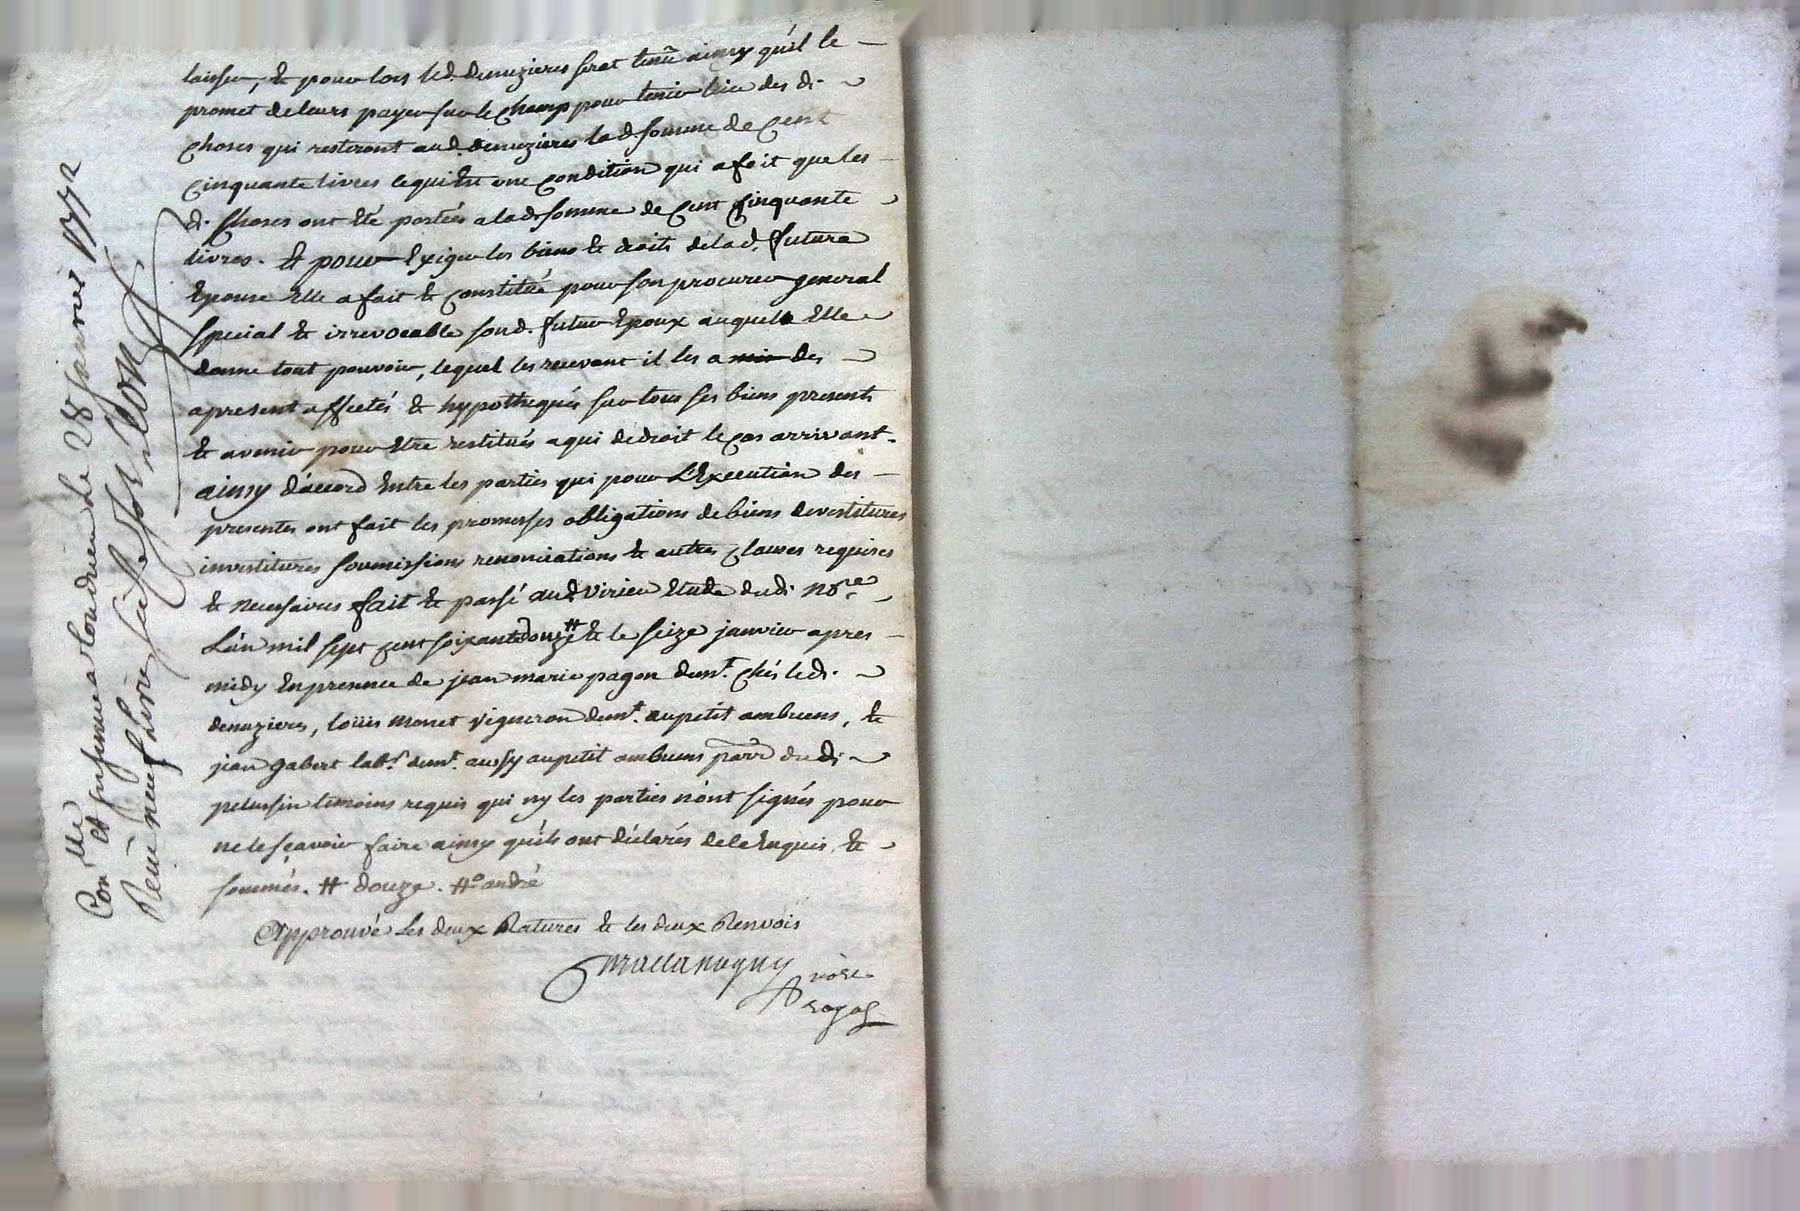 laisser, & pour lors led. denuzieres serat tenû ainsy qu'il le
promet de leurs payer sur le champ pour tenir lieu des d.
choses qui resteront aud. denuzieres lad. somme de cent
cinquante livres ce qui est une condition qui a fait que les
d. choses ont été portées a lad. somme de cent cinquante
livres. & pour exiger les biens & droits de lad. future
Epouse Elle a fait & constitué pour son procureur general
special & irrevocable sond. futur Epoux auquel Elle
donne tout pouvoir, lequel les recevant il les a des
apresent affectés & hypothequés sur tous ses biens presents
& avenir pour être restitués a qui de droit le cas arrivant.
ainsy d'accord Entre les parties qui pour L'Execution des
presentes ont fait les promesses obligations de biens devestitures
investitures soumissions renonciations & autres clauses requises
& necessaires fait & passé aud. Virieu Etude dud. nore
L'an mil sept cent soixante douze # & le seize janvier apres
midy En presence de jean marie pagon demt. chés led.
denuzieres, loüis monet vigneron demt. au petit ambuens, &
jean gabert labr. demt. aussy au petit ambuens parr dud.
pelussin temoins requis qui ny les parties n'ont signés pour
ne le sçavoir faire ainsy qu'ils ont déclarés de ce Enquis &
sommés. # douze.
Approuvé les deux Ratures & les deux Renvois
nore
royal
Conlle et a Condrieu Le 28 janvier 1772
Reçu neuf livres